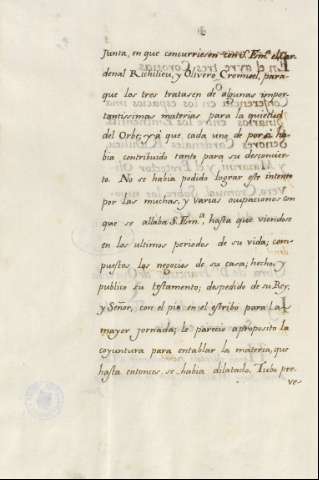 Junta, en que concurriesen con S. Em.ª el Car
denal Richilieu, y Olivero Cromuel, para
que los tres tratasen de algunas impor-
tantissimas materias para la quietud
del Orbe, yá que cada uno de por si ha
bia contribuido tanto para su desconcier
to. No se habia podido lograr este intento
por las muchas, y varias ocupaciones con
que se allaba S. Em.ª, hasta que viendose
en los ultimos periodos de su vida; com-
puestos los negocios de su casa; hecho
publico su testamento; despedido de su Rey,
y Señor, con el pie en el estribo para la
mayor jornada; le pareció aproposito la
coyuntura para entablar la materia, que
hasta entonces se habia dilatado. Tubo por
ve-